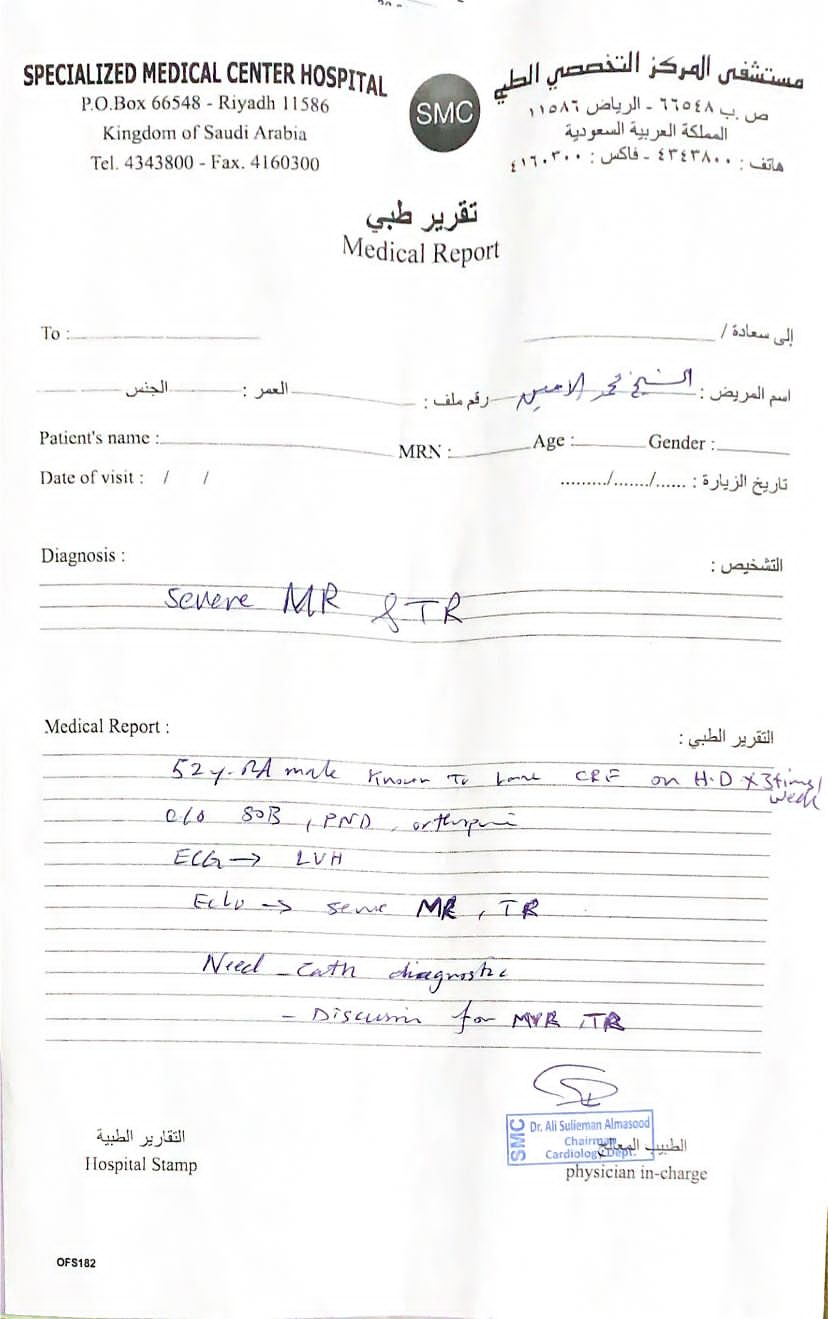 SPECIALIZED MEDICAL CENTER HOSPITAL
P.O.Box 66548 - Riyadh 11586
Kingdom of Saudi Arabia
Tel. 4343800 - Fax. 4160300
SMC
مستشفى المركز التخصصي الطبي
ص .ب ٦٦٥٤٨ - الرياض ١١٥٨٦
المملكة العربية السعودية
هاتف : ٤٣٤٣٨٠٠ - فاكس : ٤١٦٠٣٠٠
تقرير طبي
Medical Report
To :
إلى سعادة /
اسم المريض : الشيخ محمد الامين رقم ملف : العمر : الجنس
Patient's name : MRN : Age : Gender :
Date of visit : / /
تاريخ الزيارة : ....../......./.........
Diagnosis :
التشخيص :
Severe MR & TR
Medical Report :
التقرير الطبي :
52 y. male known to have CRF on H.D x 3 times/
week
c/o SOB, PND, orthopnea
ECG → LVH
Echo → severe MR, TR
Need - Cath diagnostic
- Discussion for MVR, TR
SMC
Dr. Ali Sulieman Almasood
Chairman
Cardiology Dept.
الطبيب المعالج
physician in-charge
التقارير الطبية
Hospital Stamp
OFS182